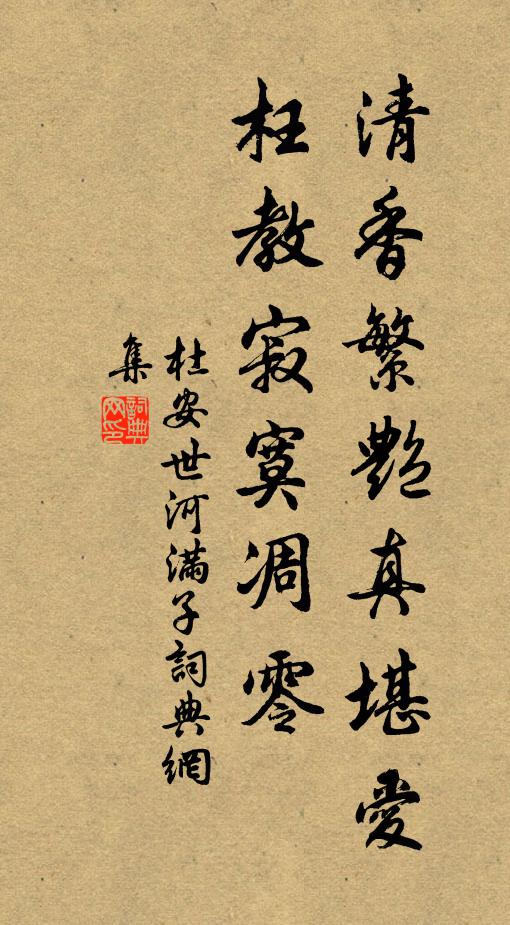 清香繁艷真堪愛
枉教寂寞凋零
杜安世河滿子詞典網
集
詞典
网印